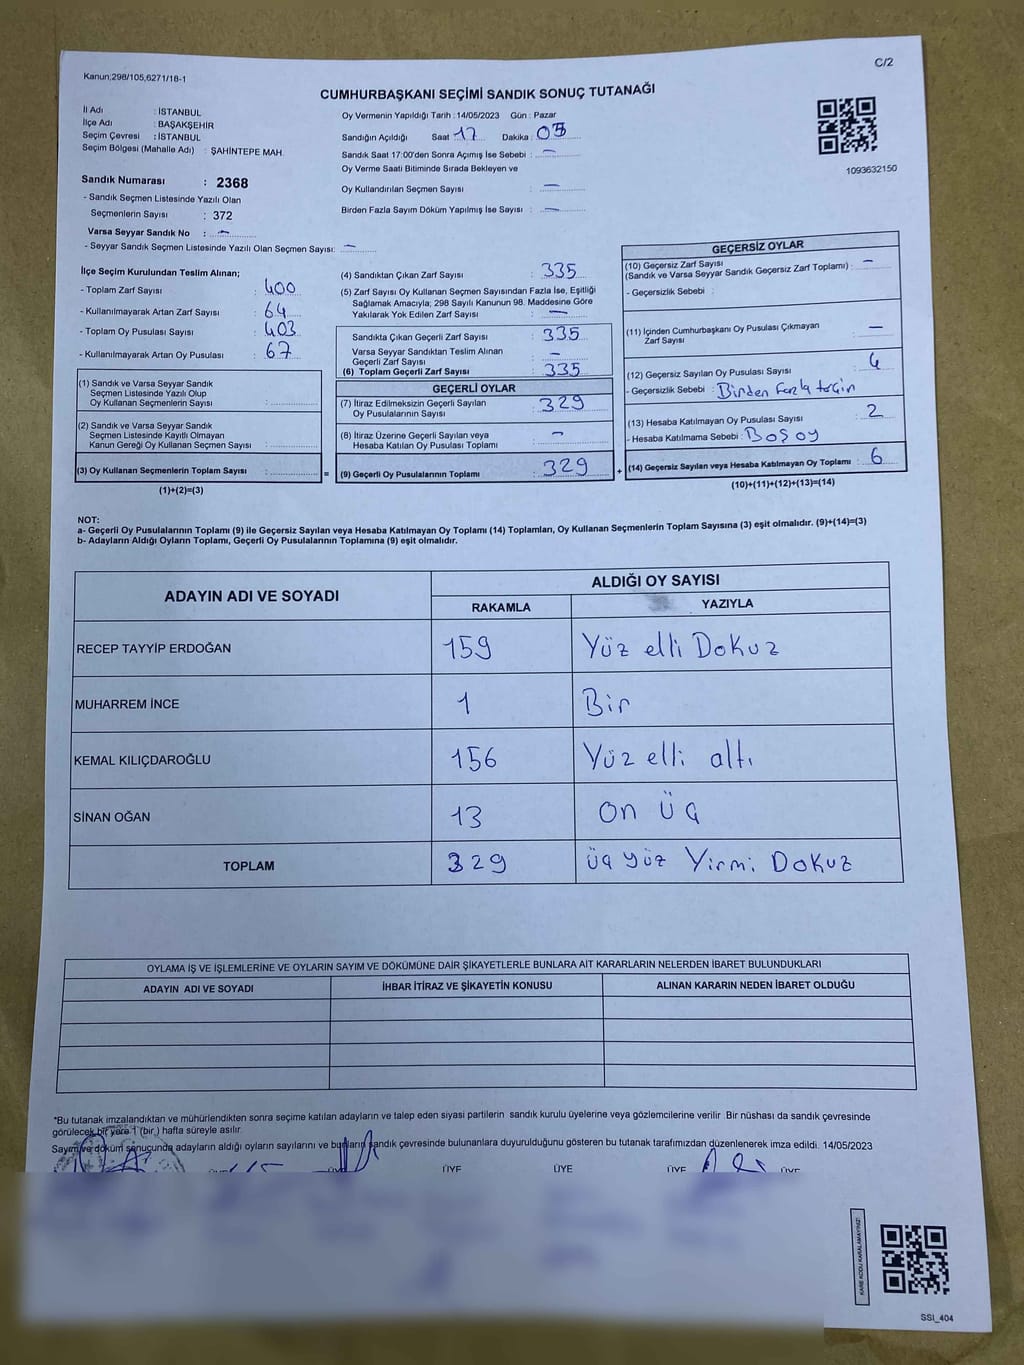 C/2
Kanun;298/105,6271/18-1
CUMHURBAŞKANI SEÇİMİ SANDIK SONUÇ TUTANAĞI
İl Adı : İSTANBUL
İlçe Adı : BAŞAKŞEHİR
Seçim Çevresi : İSTANBUL
Seçim Bölgesi (Mahalle Adı) : ŞAHİNTEPE MAH.
Sandık Numarası : 2368
- Sandık Seçmen Listesinde Yazılı Olan
Seçmenlerin Sayısı : 372
Varsa Seyyar Sandık No : —
- Seyyar Sandık Seçmen Listesinde Yazılı Olan Seçmen Sayısı: —
Oy Vermenin Yapıldığı Tarih : 14/05/2023 Gün : Pazar
Sandığın Açıldığı Saat 17 Dakika : 05
Sandık Saat 17:00'den Sonra Açımış İse Sebebi : —
Oy Verme Saati Bitiminde Sırada Bekleyen ve
Oy Kullandırılan Seçmen Sayısı : —
Birden Fazla Sayım Döküm Yapılmış İse Sayısı : —
1093632150
İlçe Seçim Kurulundan Teslim Alınan;
- Toplam Zarf Sayısı : 400
- Kullanılmayarak Artan Zarf Sayısı : 64
- Toplam Oy Pusulası Sayısı : 403
- Kullanılmayarak Artan Oy Pusulası : 67
(1) Sandık ve Varsa Seyyar Sandık
Seçmen Listesinde Yazılı Olup
Oy Kullanan Seçmenlerin Sayısı :
(2) Sandık ve Varsa Seyyar Sandık
Seçmen Listesinde Kayıtlı Olmayan
Kanun Gereği Oy Kullanan Seçmen Sayısı :
(3) Oy Kullanan Seçmenlerin Toplam Sayısı : =
(1)+(2)=(3)
(4) Sandıktan Çıkan Zarf Sayısı : 335
(5) Zarf Sayısı Oy Kullanan Seçmen Sayısından Fazla İse, Eşitliği
Sağlamak Amacıyla; 298 Sayılı Kanunun 98. Maddesine Göre
Yakılarak Yok Edilen Zarf Sayısı : —
Sandıkta Çıkan Geçerli Zarf Sayısı : 335
Varsa Seyyar Sandıktan Teslim Alınan
Geçerli Zarf Sayısı : —
(6) Toplam Geçerli Zarf Sayısı : 335
GEÇERLİ OYLAR
(7) İtiraz Edilmeksizin Geçerli Sayılan
Oy Pusulasının Sayısı : 329
(8) İtiraz Üzerine Geçerli Sayılan veya
Hesaba Katılan Oy Pusulası Toplamı : —
(9) Geçerli Oy Pusulalarının Toplamı : 329 +
GEÇERSİZ OYLAR
(10) Geçersiz Zarf Sayısı
(Sandık ve Varsa Seyyar Sandık Geçersiz Zarf Toplamı) : —
- Geçersizlik Sebebi :
(11) İçinden Cumhurbaşkanı Oy Pusulası Çıkmayan
Zarf Sayısı : —
(12) Geçersiz Sayılan Oy Pusulası Sayısı : 4
- Geçersizlik Sebebi : Birden Fazla
(13) Hesaba Katılmayan Oy Pusulası Sayısı : 2
- Hesaba Katılmama Sebebi : Boş oy
(14) Geçersiz Sayılan veya Hesaba Katılmayan Oy Toplamı : 6
(10)+(11)+(12)+(13)=(14)
NOT:
a- Geçerli Oy Pusulalarının Toplamı (9) ile Geçersiz Sayılan veya Hesaba Katılmayan Oy Toplamı (14) Toplamları, Oy Kullanan Seçmenlerin Toplam Sayısına (3) eşit olmalıdır. (9)+(14)=(3)
b- Adayların Aldığı Oyların Toplamı, Geçerli Oy Pusulalarının Toplamına (9) eşit olmalıdır.
ADAYIN ADI VE SOYADI
ALDIĞI OY SAYISI
RAKAMLA YAZIYLA
RECEP TAYYİP ERDOĞAN 159 Yüz elli Dokuz
MUHARREM İNCE 1 Bir
KEMAL KILIÇDAROĞLU 156 Yüz elli altı
SİNAN OĞAN 13 on üç
TOPLAM 329 üç yüz Yirmi Dokuz
OYLAMA İŞ VE İŞLEMLERİNE VE OYLARIN SAYIM VE DÖKÜMÜNE DAİR ŞİKAYETLERLE BUNLARA AİT KARARLARIN NELERDEN İBARET BULUNDUKLARI
ADAYIN ADI VE SOYADI İHBAR İTİRAZ VE ŞİKAYETİN KONUSU ALINAN KARARIN NEDEN İBARET OLDUĞU
*Bu tutanak imzalandıktan ve mühürlendikten sonra seçime katılan adayların ve talep eden siyasi partilerin sandık kurulu üyelerine veya gözlemcilerine verilir. Bir nüshası da sandık çevresinde
görülecek bir yere 1 (bir ) hafta süreyle asılır.
Sayım ve döküm sonucunda adayların aldığı oyların sayılarını ve bunların sandık çevresinde bulunanlara duyurulduğunu gösteren bu tutanak tarafımızdan düzenlenerek imza edildi. 14/05/2023
ÜYE ÜYE ÜYE ÜYE
KARE KODU KARALAMAYINIZ!
SSI_404